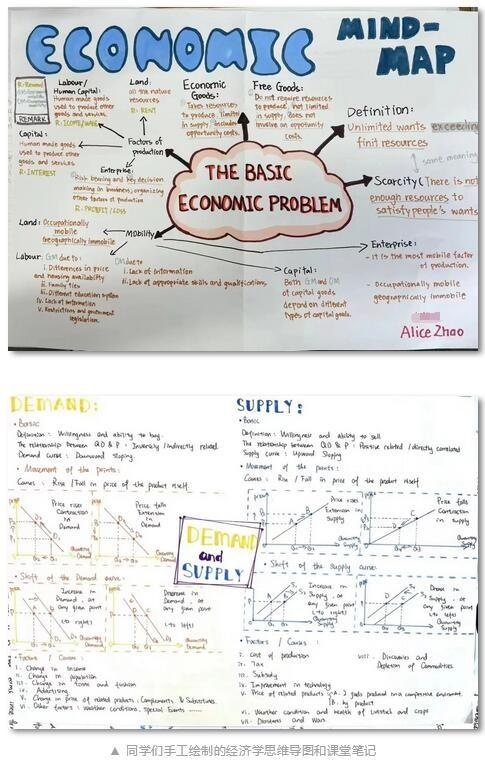 ECONOMIC MIND-MAP
R: Reward
REMARK
Labour/
Human Capital:
Human made goods
used to produce other
goods and services
R: INCOME/WAGE
Land:
all the nature
resources
R: RENT
Economic
Goods:
Takes resources
to produce, limited
in supply, includes
opportunity costs.
Free Goods:
Do not require resources
to produce, not limited
in supply, does not
involve an opportunity
costs.
Definition:
Unlimited wants exceeding
finit resources
same meaning
Scarcity (There is not
enough resources to
satisfy people's wants
Capital:
Human made goods
used to produce other
goods and services
R: INTEREST
Factors of
production
Enterprise:
Risk bearing and key decision
making in business, organizing
other factors of production
R: PROFIT/LOSS
THE BASIC
ECONOMIC PROBLEM
Land: Occupationally
mobile
Geographically immobile
Mobility
Labour: GM due to:
i. Differences in price
and housing availability
ii. Family ties
iii. Different education system
iv. Lack of information
v. Restrictions and government
legislation.
OM due to
i. Lack of information
ii. Lack of appropriate skills and qualifications
Capital:
Both GM and OM
of capital goods
depend on different
types of capital goods.
Enterprise:
- it is the most mobile factor
of production.
- Occupationally mobile
geographically immobile
Alice Zhao
DEMAND:
• Basic
Definition: Willingness and ability to buy.
The relationship between QD & P: Inversely/indirectly related
Demand curve: Downward sloping.
• Movement of the points:
Causes: Rise / Fall in price of the product itself.
Price rises
Contraction
in
Demand
Price falls
Extension in
Demand
• Shift of the Demand curve:
Increase in
Demand, at
any given point
(to right)
Decrease in
Demand, at
any given point
(to left)
• Factors / Causes:
i. Change in Income
ii. Change in population
iii. Change in taste and fashion
iv. Advertising
v. Change in price of related products: Complements & Substitutes
vi. Other factors: weather conditions, Special Events
DEMAND
and
SUPPLY
SUPPLY:
• Basic
Definition: Willingness and ability to sell
The relationship between QD & P: Positive related/directly correlated
Supply curve: Upward Sloping
• Movement of the points:
Causes: Rise / Fall in price of the product itself
Price rises
Extension in
Supply
Price falls
Contraction
in supply
• Shift of the supply curve:
Increase in
Supply, at
any given point
(to right)
Supply, at
any given point
(to left)
• Factors / Causes:
i. Cost of production
ii. Tax
iii. Subsidy
iv. Improvement in technology
v. Price of related products: A. 2 goods produced in a competitive enviroment
B. by product
vi. Weather condition and health of livestock and crops
vii. Disasters and Wars
viii. Discoveries and
Depletion of Commodities
▲ 同学们手工绘制的经济学思维导图和课堂笔记